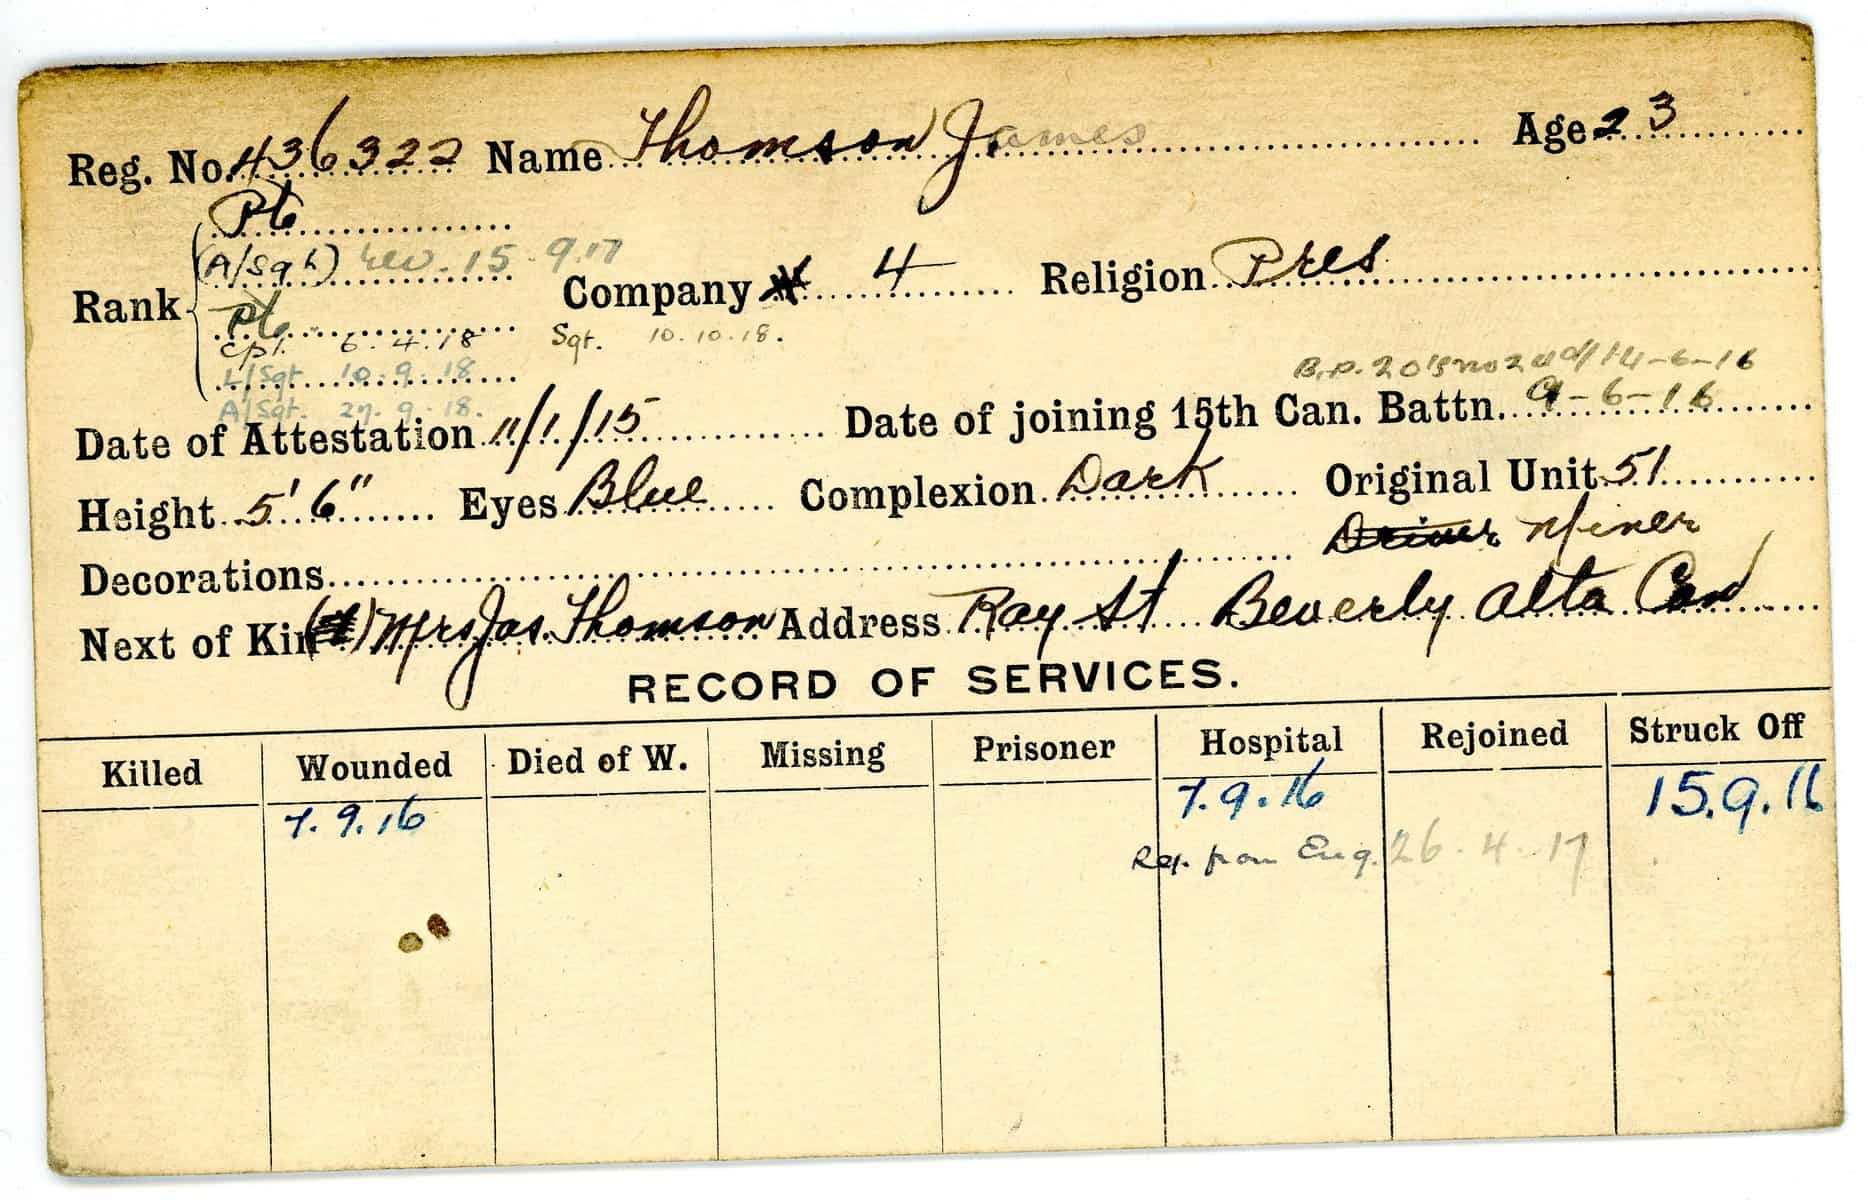 Reg. No. 436322 Name Thomson James Age 23
Pte
(A/Sgt) rev. 15-9.17
Rank Company 4 Religion Pres
Pte
Cpl. 6.4.18 Sgt. 10.10.18.
L/Sgt 10.9.18
A/Sgt. 27.9.18.
B.P. 2015 no 24 d/14-6-16
Date of Attestation 11/1/15 Date of joining 15th Can. Battn. 9-6-16
Height 5' 6" Eyes Blue Complexion Dark Original Unit 51
Driver Miner
Decorations
Next of Kin Mrs Jas. Thomson Address Ray St Beverly Alta Can
RECORD OF SERVICES.
Killed Wounded Died of W. Missing Prisoner Hospital Rejoined Struck Off
7.9.16 7.9.16 15.9.16
Rej. from Eng. 26.4.17